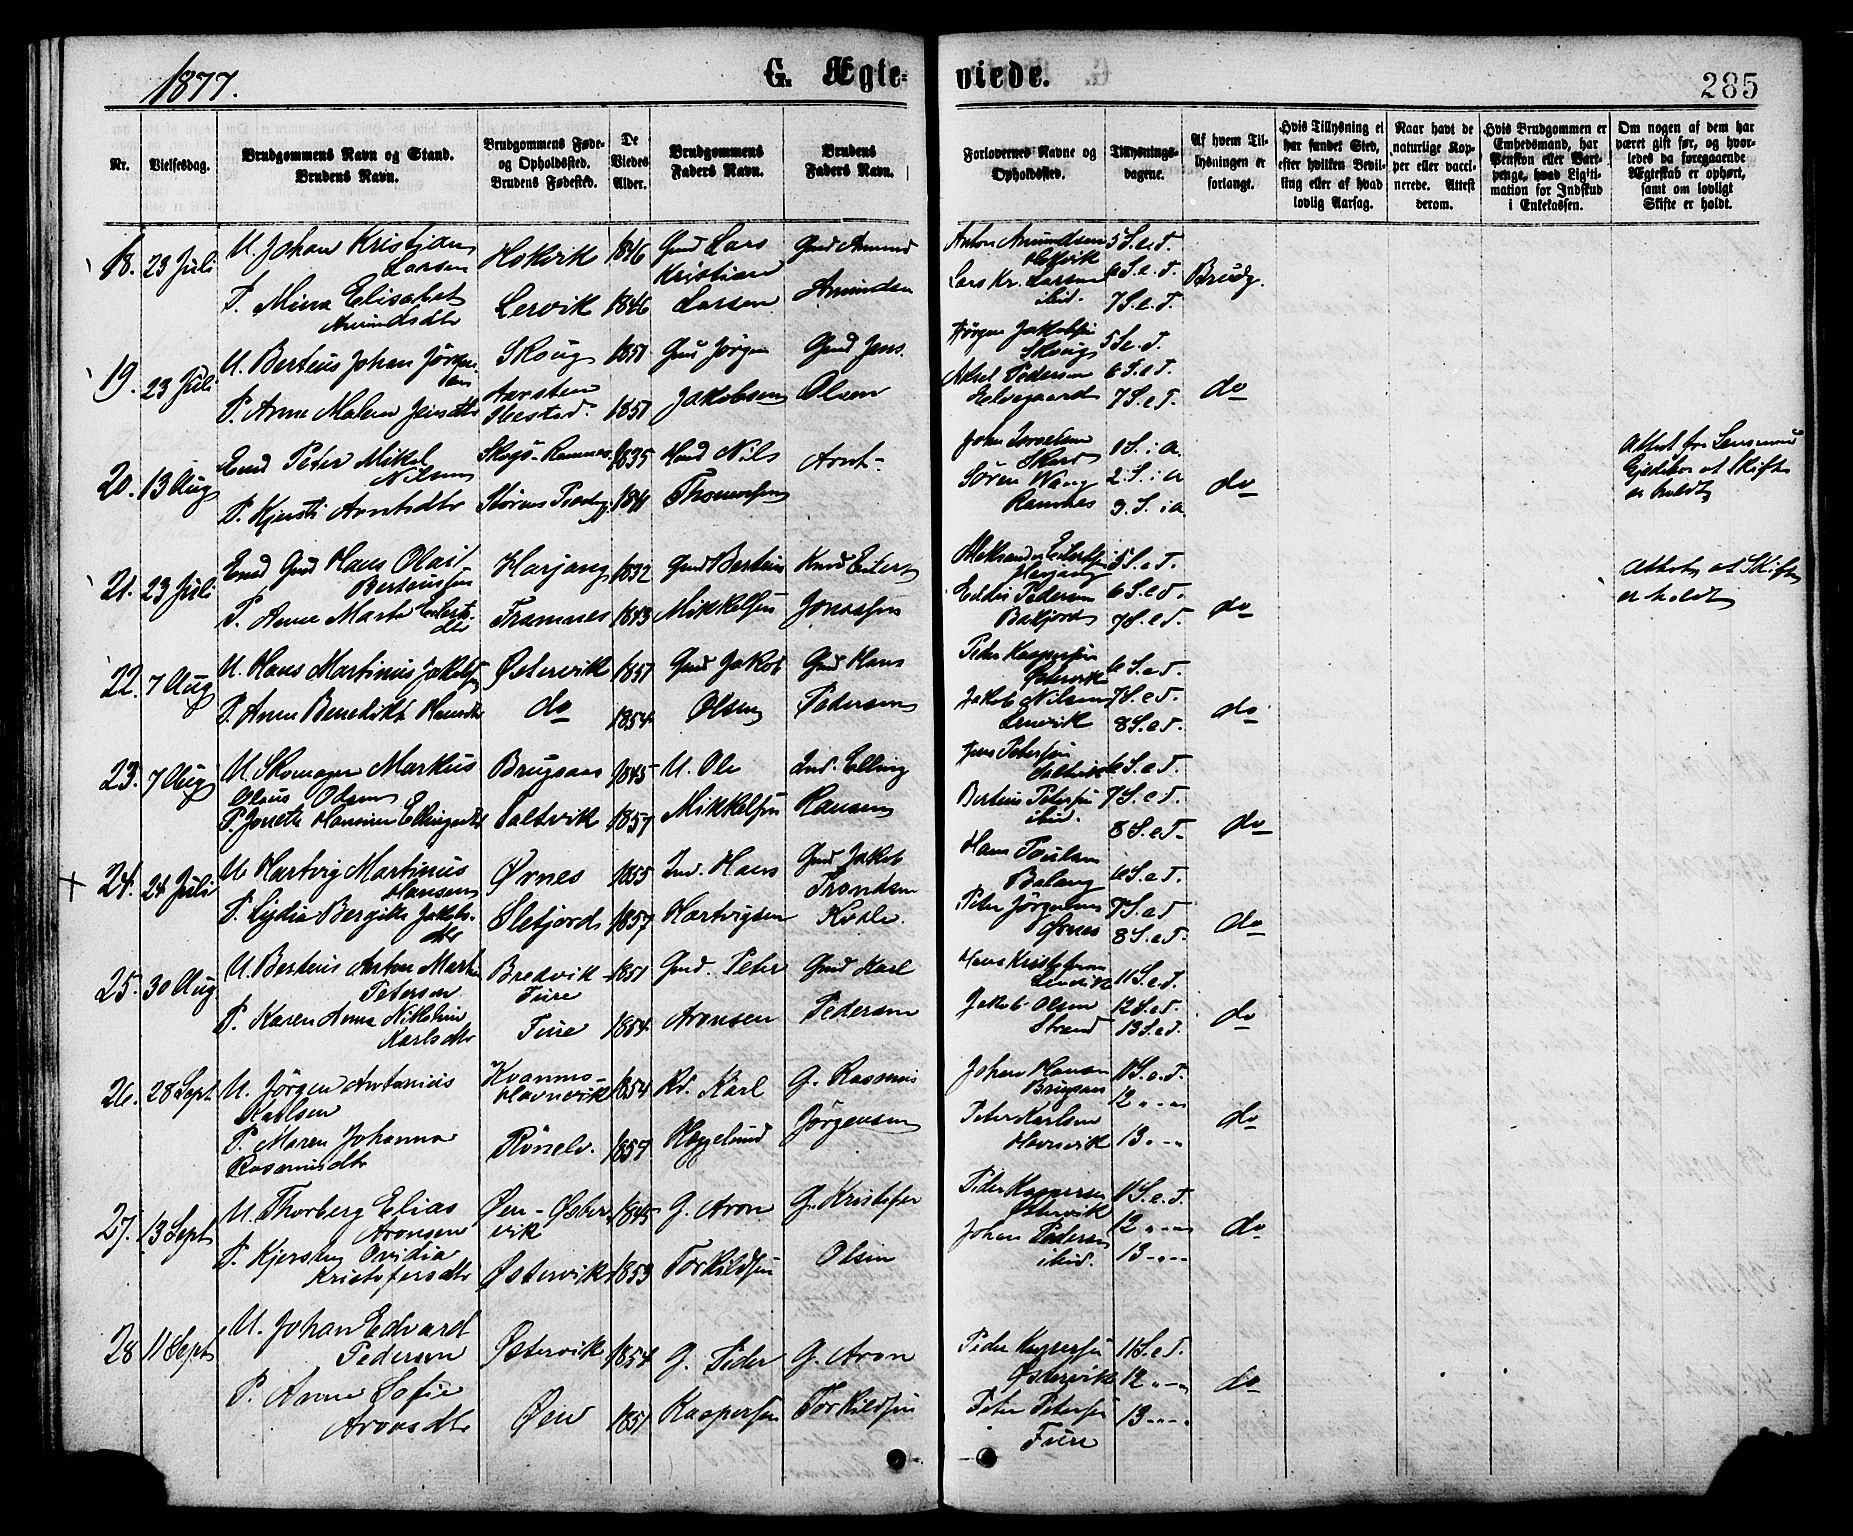 1877.
G. Ægte-
viede.
285
Nr.
Vielsesdag.
Brudgommens Navn og Stand.
Brudens Navn.
Brudgommens Føde-
og Opholdssted.
Brudens Fødested.
De
Viedes
Alder.
Brudgommens
Faders Navn.
Brudens
Faders Navn.
Forlovernes Navne og
Opholdssted.
Tillysnings-
dagene.
Af hvem Til-
lysningen er
forlangt.
Hvis Tillysning ei
har fundet Sted,
efter hvilken Bevil-
ling eller af hvad
lovlig Aarsag.
Naar havt de
naturlige Kop-
per eller vacci-
nerede. Attest
derom.
Hvis Brudgommen er
Embedsmand, har
Pension eller Vart-
penge, hvad Ligiti-
mation for Indskud
i Enkekassen.
Om nogen af dem har
været gift før, og hvor-
ledes da foregaaende
Ægteskab er ophørt,
samt om lovligt
Skifte er holdt.
18. 23 Juli
U. Johan Kristian
Larsen
P. Mina Elisabet
Amundsdtr
Hokvik
Lervik
1846
1846
Gmd Lars
Kristian
Larsen
Gmd Amund
Anton Amundsen
Lars Kr. Larsen
ibid.
5 S. e. T.
6 S. e. T.
7 S. e. T.
Brudg.
19. 23 Juli
U. Berteus Johan Jørgen-
sen
P. Anne Malene Jensdtr
Skoug
Aarsten
Ibestad.
1851
1851
Gmd Jørgen
Jakobsen
Gmd Jens
Olsen
Jørgen Jakobsen
Skoug
Aksel Pedersen
5 S. e. T.
6 S. e. T.
7 S. e. T.
do
20. 13 Aug
Emd Peter Mikal
Nilsen
P. Kjersti Arntsdtr
1835
1841
Nils
Thomassen
Arnt-
Søren Wang
Ramnes
1 S. i A.
2 S. i A
3 S. i A.
do
Attest fra Lensmand
at Skifte
er holdt
21. 23 Juli
Emd Gmd Hans Olai
Berteussen
P. Anne Marte Eilerts-
dtr
Harjang
Framnes
1832
1843
Gmd Berteus
Mikkelsen
Jonassen
Peder Pedersen
5 S. e T.
6 S. e T.
7 S. e T.
do
Attest at Skifte
er holdt
22. 7 Aug
U. Hans Martinus Jakobsen
P. Anne Benedikte Hansdtr
Østervik
do
1851
1854
Gmd Jakob
Olsen
Gmd Hans
Pedersen
Peter Kaspersen
Østervik
Jakob Nilsen
Lenvik
6 S. e T.
7 S. e T.
8 S. e T.
do
23. 7 Aug
U. Skomager Markus
Olaus Olsen
Brugsaas
Saltvik
1845
1857
U. Ole
Mikkelsen
Ind. Elling
Hansen
Jens Petersen
Saltvik
Berteus Petersen
ibid.
6 S. e T.
7 S. e T.
8 S. e T.
do
24. 24 Juli
U. Hartvig Martinus
Hansen
P. Lydia Bergitte Jakobs-
dtr
Ørnes
Slefjord
1855
1857
Ind. Hans
Hartvigsen
Gmd Jakob
Trondsen
Kvale.
Hans Poulsen
Balang
Peter Jørgensen
Ørnes
6 S. e T.
7 S. e T
8 S. e T.
do
25. 30 Aug
U. Berteus Anton Martin
Petersen
P. Karen Anna Nikoline
Karlsdtr
Bredvik
Fure
Fure
1851
1854
Gmd. Peter
Aronsen
Gmd Karl
Pedersen
Hans Kristofersen
Lenvik
Jakob Olsen
Strand
11 S. e T.
12 S. e T.
13 S. e T.
do
26. 28 Sept
U. Jørgen Antonius
Karlsen
P. Maren Johanna
Rasmusdtr
Kvannes-
Havnevik
Rønelv.
1854
1857
Karl
Heggelund
G. Rasmus
Jørgensen
Johan Hansen
Brugsaas
Peter Karlsen
Havnevik
11 S. e. T.
12 " - "
13 " - "
do
27. 13 Sept
U. Thorberg Elias
Aronsen
P. Kjersten Ovidia
Kristofersdtr
Øen - Øster-
vik
Østervik
1845
1853
G. Aron
Torkildsen
G. Kristofer
Olsen
Peder Kaspersen
Østervik
Johan Pedersen
ibid.
11 S. e. T.
12 " - "
13 - " -
do
28 11 Sept
U. Johan Edvard
Pedersen
P. Anne Sofie
Aronsdtr
Østervik
Øen
1854
1851
G. Peder
Kaspersen
G. Aron
Torkildsen
Peder Kaspersen
Østervik
Peter Petersen
Fure
11 S. e T.
12 " - "
13 - " -
do